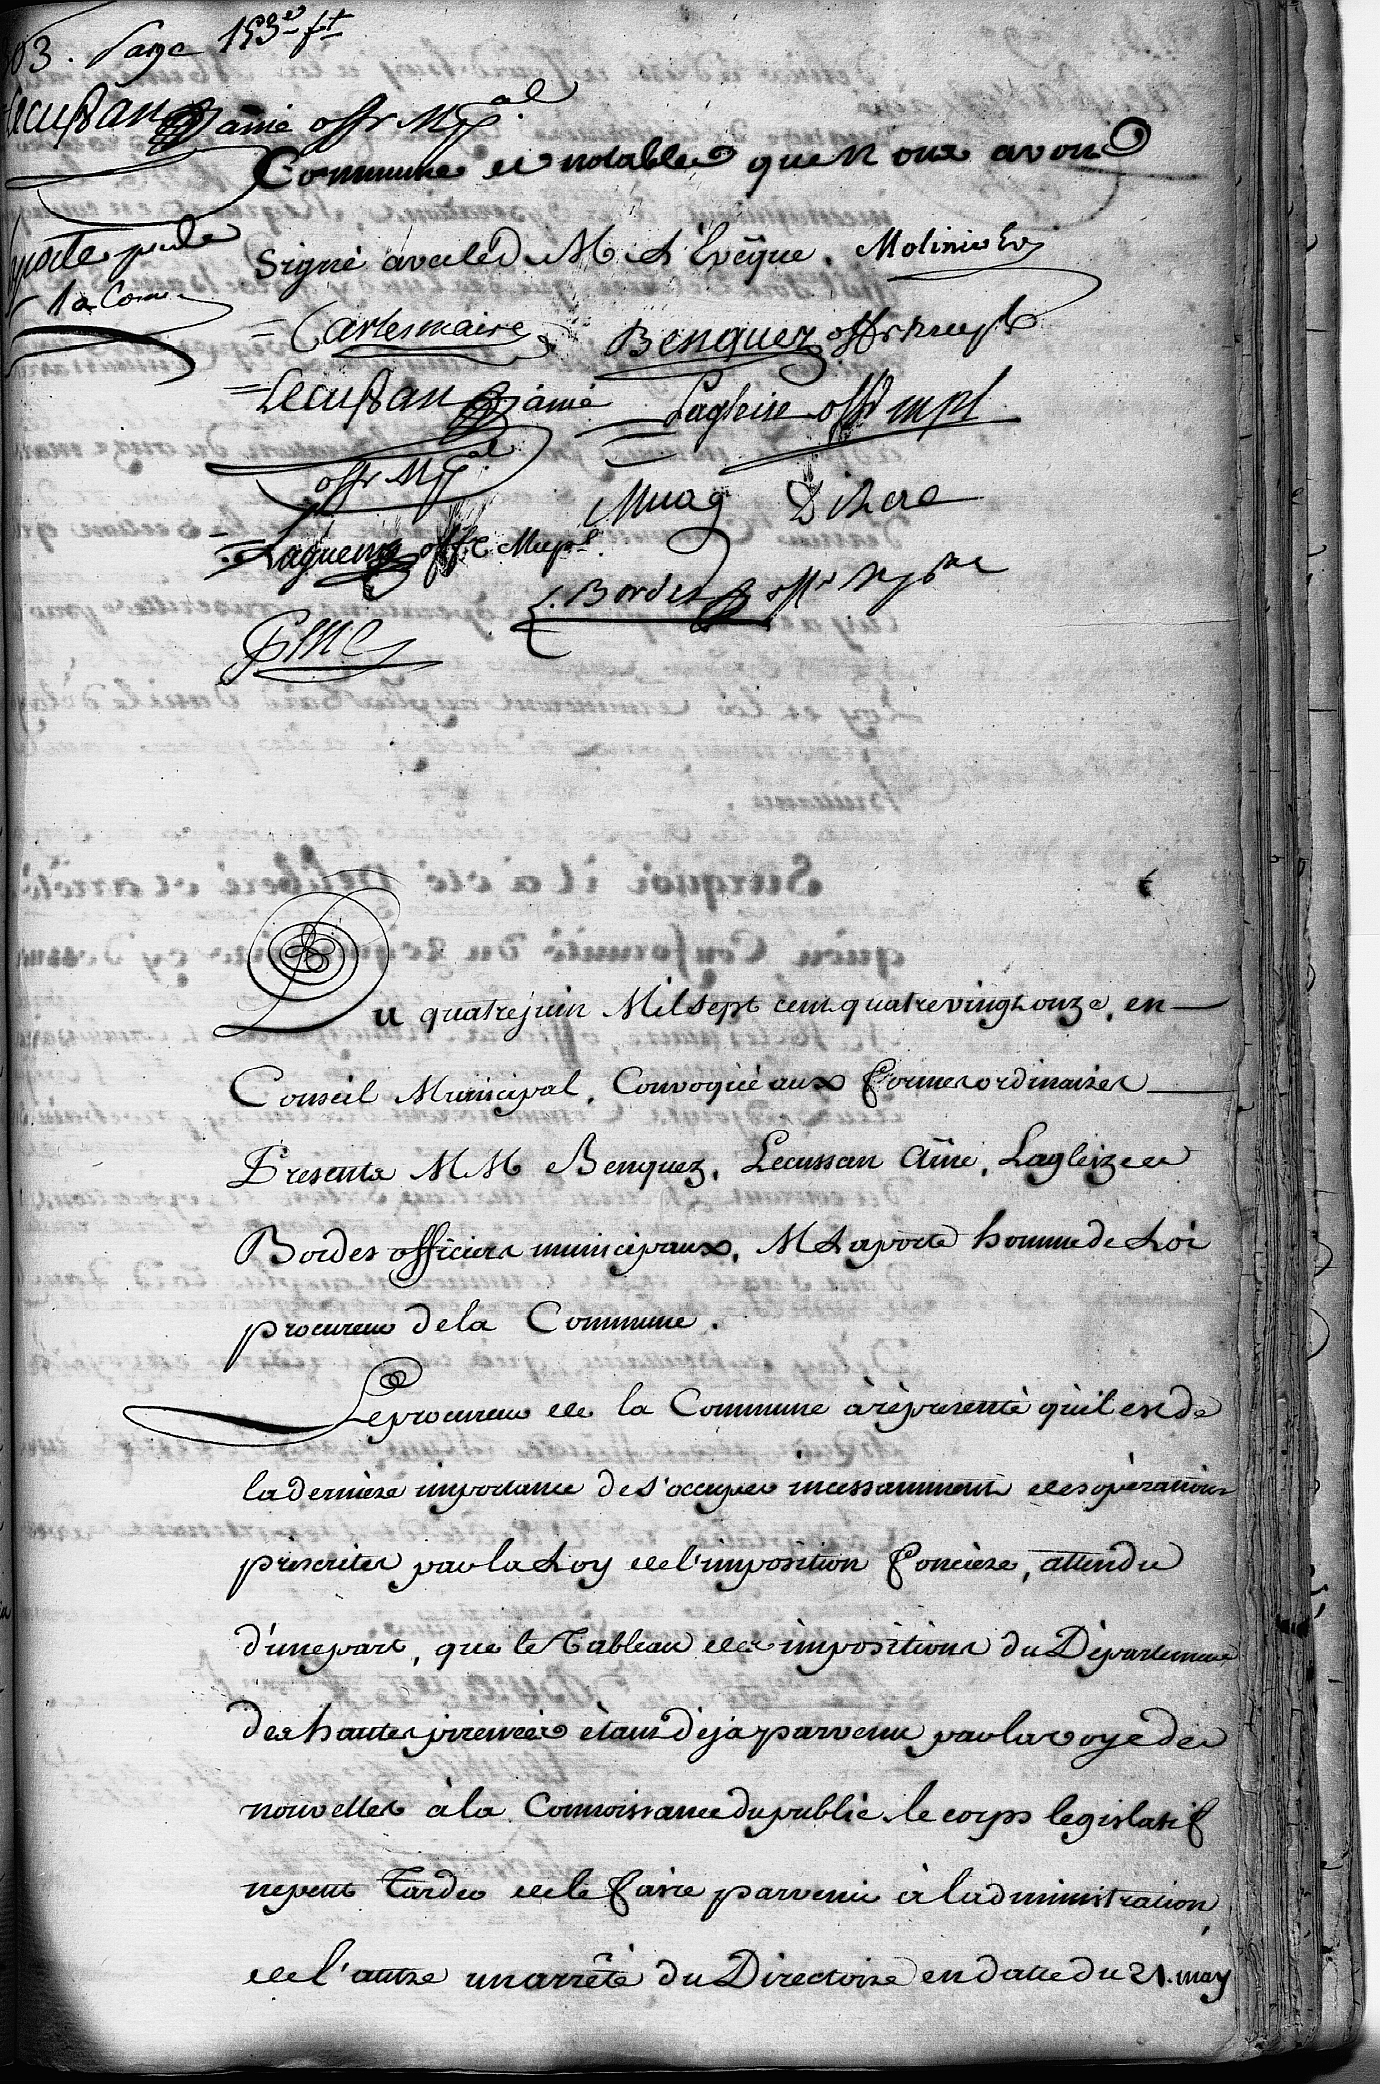 Page 153
Lecussan ainé offr Mpal
Commune et notables que nous avons
Signé avec led M L'Evêque. Molinier
1a Come
Cartes maire
Benquez offr mupl
Lecussan ainé
Lagleize offr mpl
offr Mpal
offe Mupl.
Bordes offr
Du quatre juin Mil sept cent quatre vingt onze, en
Conseil Municipal, Convoqué aux formes ordinaires
Présents MM Benquez, Lecussan Ainé, Lagleize et
Bordes officiers municipaux, M Laporte homme de Loi
procureur de la Commune.
Le procureur de la Commune à représenté qu'il est de
la dernière importance de s'occuper incessamment des opérations
préscrites par la Loy de l'imposition foncière, attendu
d'une part, que le Tableau des impositions du Département
des hautes pirenées étant déja parvenu par la voye des
nouvelles à la Connoissance du public, le corps législatif
ne peut Tarder de le faire parvenir à l'administration,
de l'autre un arrêté du Directoire en datte du 21. may